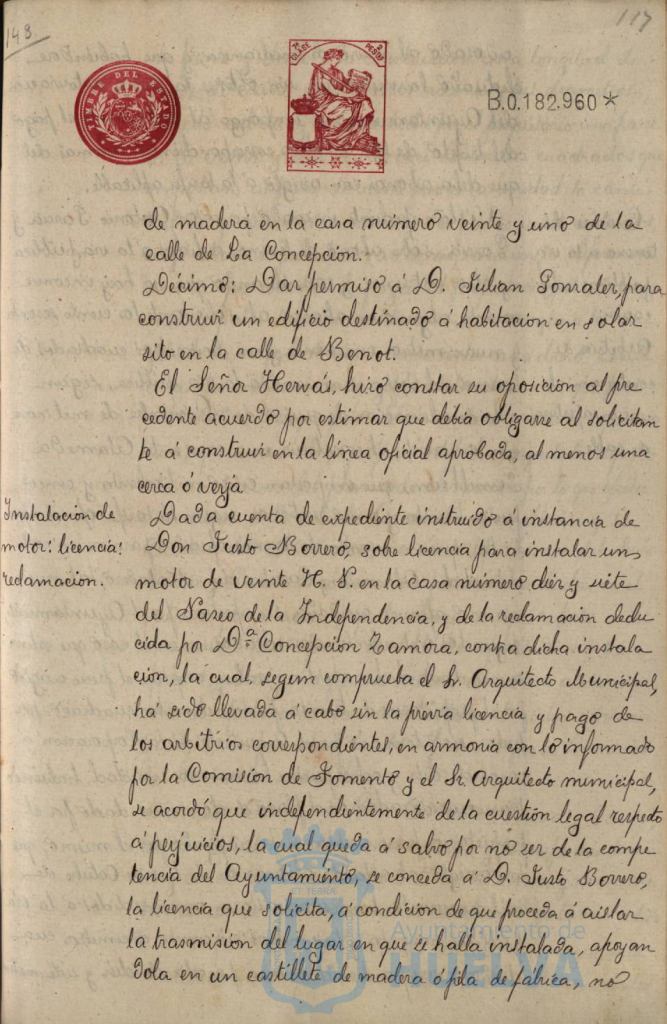 149
117
TIMBRE DEL ESTADO
7ª CLASE
2 PESTAS
B.0.182.960*
de madera en la casa número veinte y uno de la
calle de La Concepcion.
Décimo: Dar permiso á D. Julian Gonzalez, para
construir un edificio destinado á habitacion en solar
sito en la calle de Benot.
El Señor Hervás, hizo constar su oposicion al pre
cedente acuerdo por estimar que debia obligarse al solicitan
te á construir en la línea oficial aprobada, al menos una
cerca ó verja
Instalacion de
motor: licencia:
reclamacion.
Dada cuenta de expediente instruido á instancia de
Don Justo Borrero, sobre licencia para instalar un
motor de veinte H. P. en la casa número diez y siete
del Paseo de la Independencia, y de la reclamacion dedu
cida por D.ª Concepcion Zamora, contra dicha instala
cion, la cual, segun comprueba el Sr. Arquitecto Municipal,
há sido llevada á cabo sin la prévia licencia y pago de
los arbitrios correspondientes, en armonia con lo informado
por la Comision de Fomento y el Sr. Arquitecto municipal,
se acordó que independientemente de la cuestión legal respecto
á perjuicios, la cual queda á salvo por no ser de la compe
tencia del Ayuntamiento, se conceda á D. Justo Borrero,
la licencia que solicita, á condicion de que proceda á aislar
la trasmision del lugar en que se halla instalada, apoyan
dola en un castillete de madera ó pila de fábrica, no
Ayuntamiento de
HUELVA